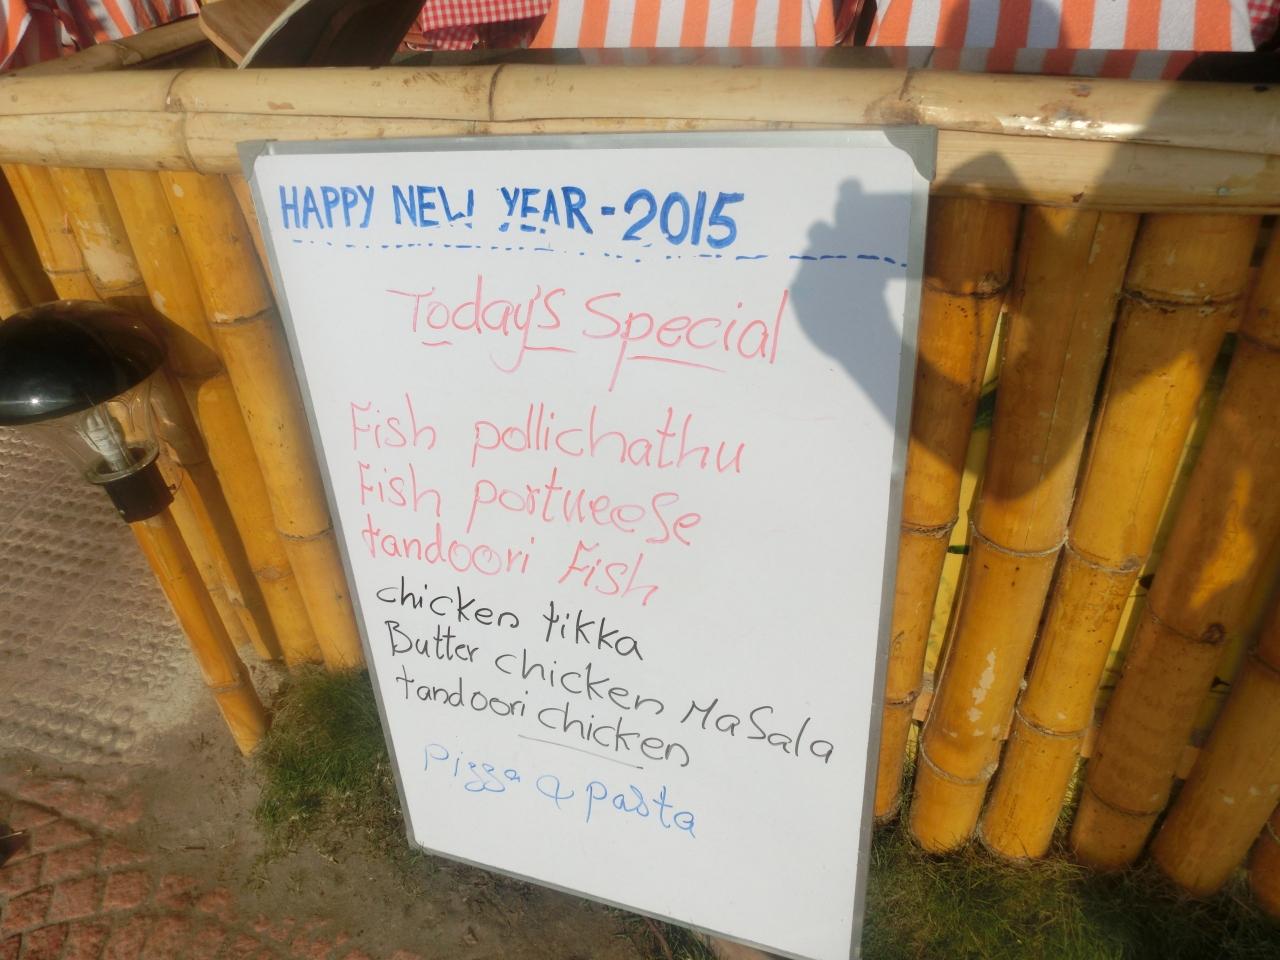 HAPPY NEW YEAR - 2015
Today's Special
Fish pollichathu
Fish portueese
tandoori Fish
chicken tikka
Butter chicken MaSala
tandoori chicken
Pizza & Pasta